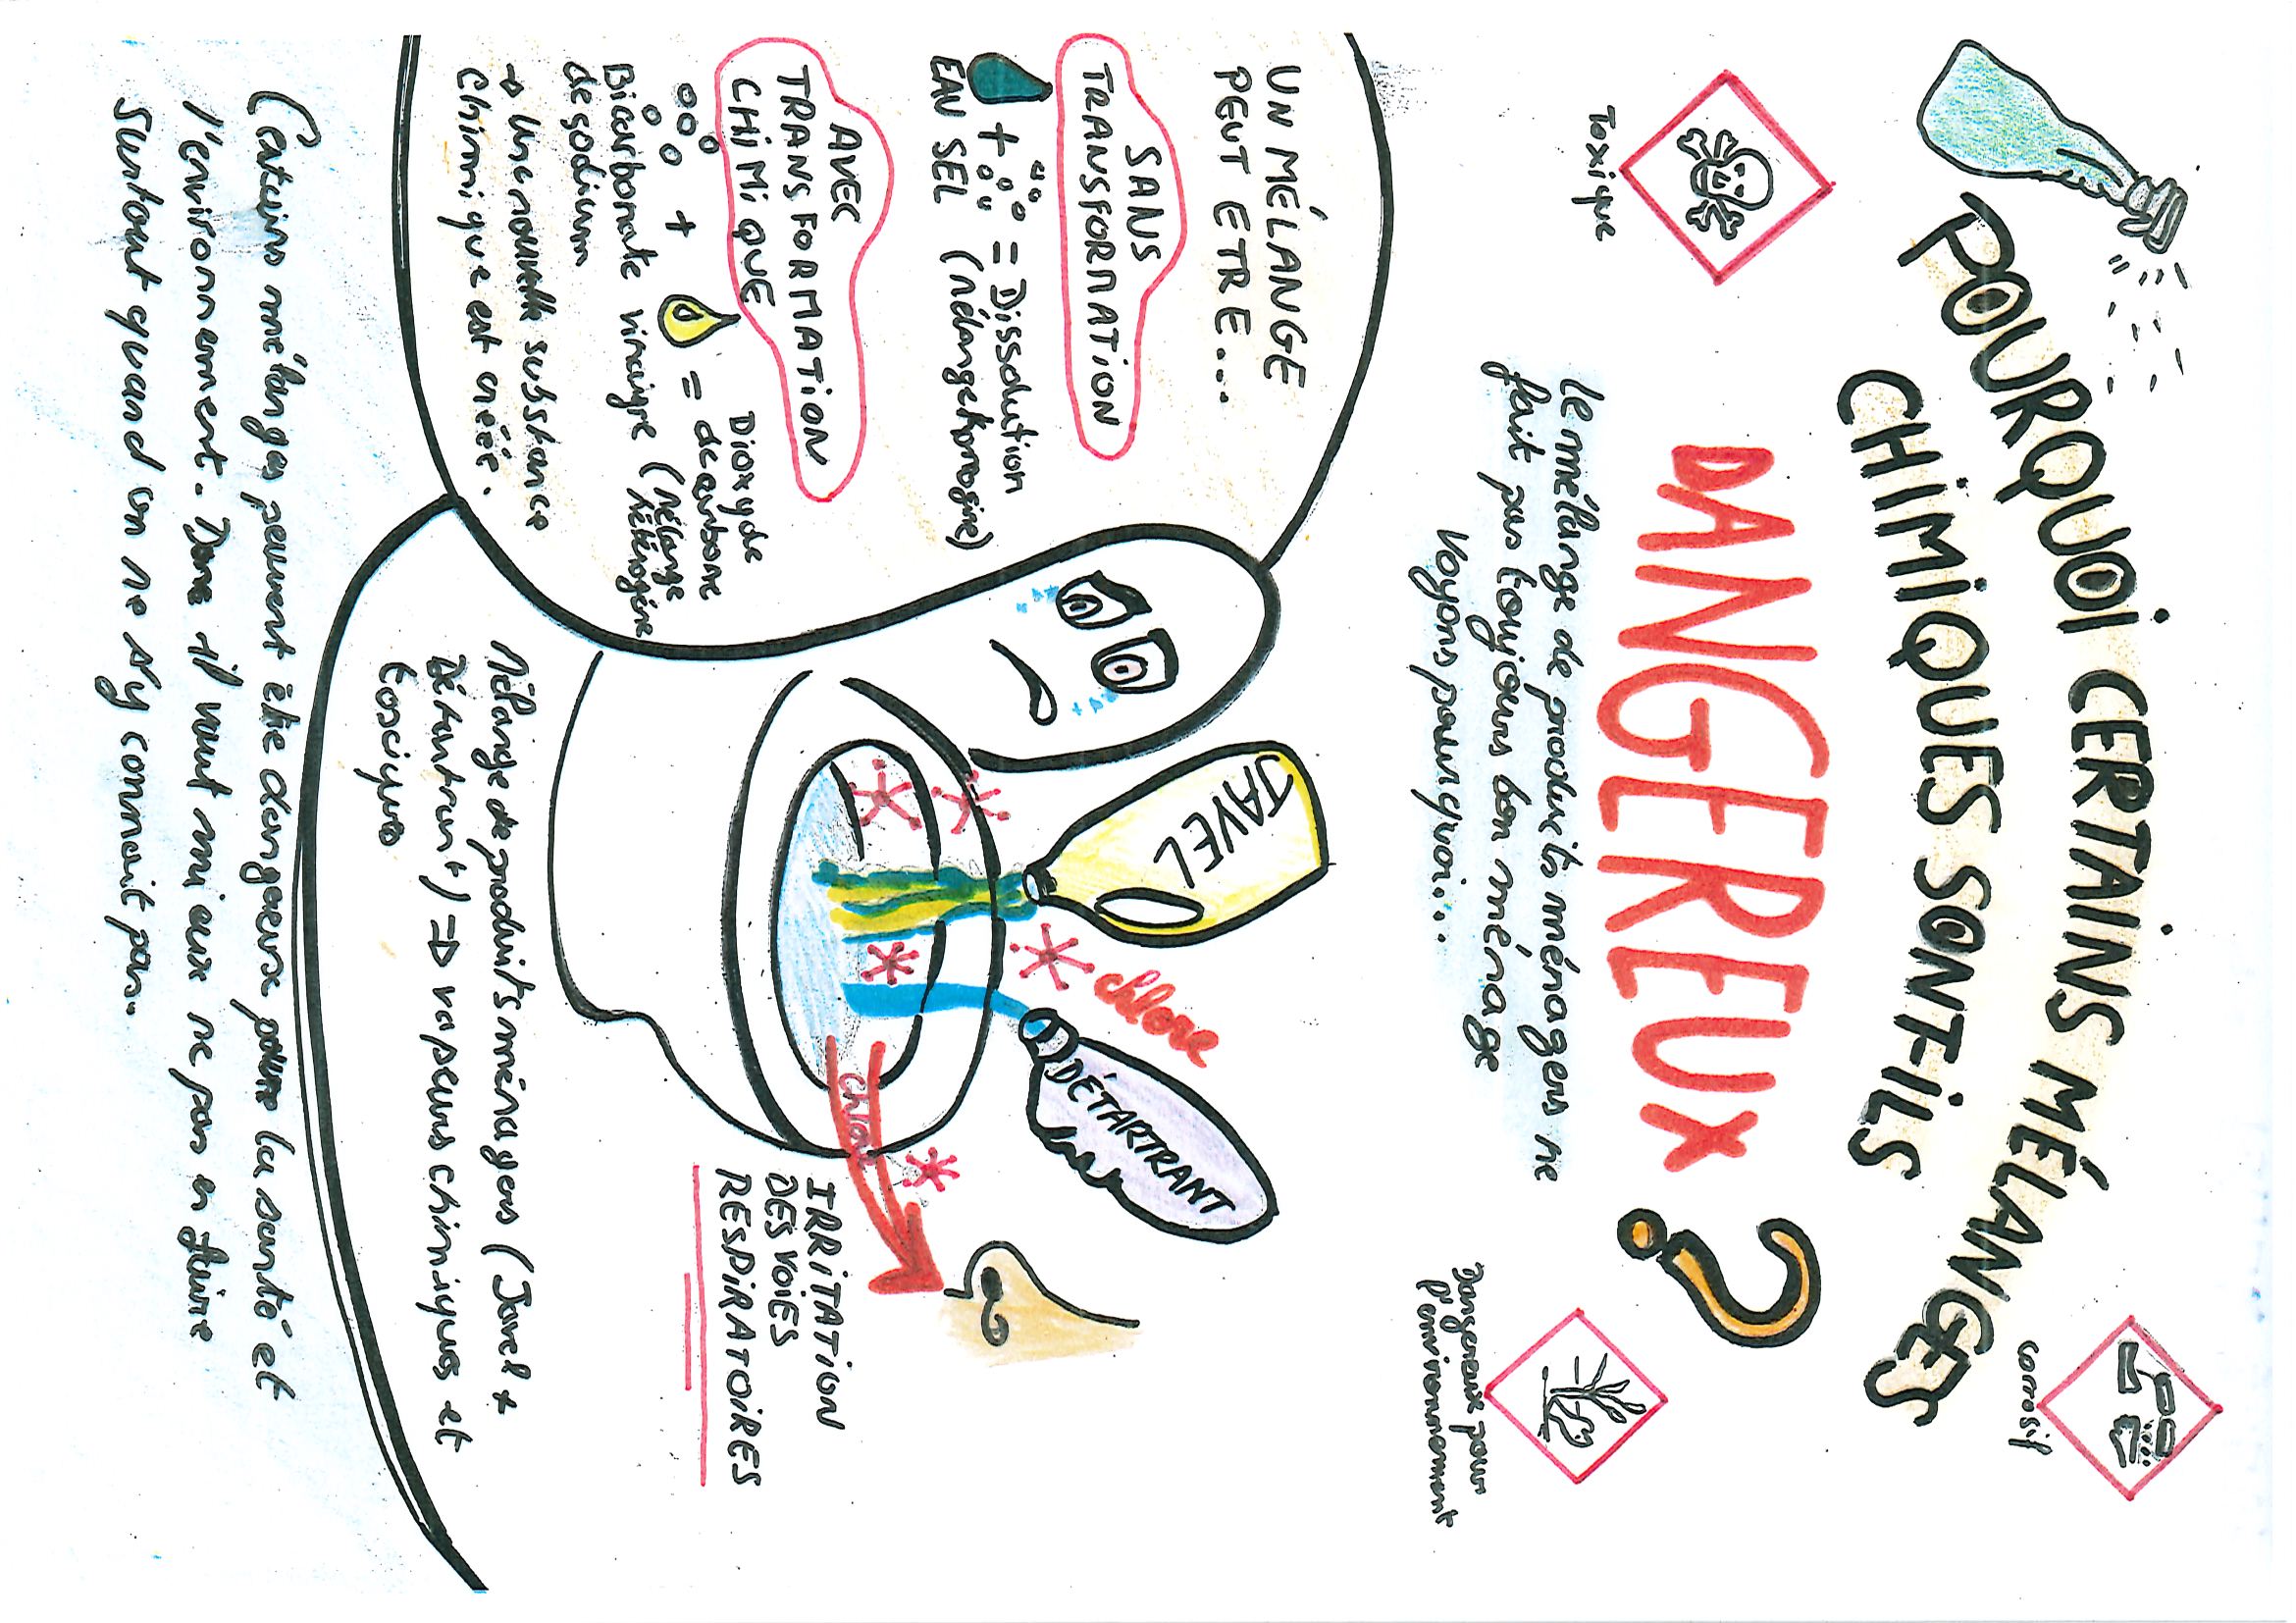 POURQUOI CERTAINS MÉLANGES
CHIMIQUES SONT-ILS
DANGEREUX ?
Corrosif
Toxique
Dangereux pour
l'environnement
Le mélange de produits ménagers ne
fait pas toujours bon ménage
Voyons pourquoi...
UN MÉLANGE
PEUT ETRE...
SANS
TRANSFORMATION
+ = Dissolution
EAU SEL (mélange homogène)
AVEC
TRANSFORMATION
CHIMIQUE
+ = Dioxyde
de carbone
Bicarbonate vinaigre (Mélange
de sodium hétérogène
→ Une nouvelle substance
chimique est créée.
JAVEL
chlore
DÉTARTRANT
chlore
IRRITATION
DES VOIES
RESPIRATOIRES
Mélange de produits ménagers (Javel +
Détartrant) => vapeurs chimiques et
toxiques
Certains mélanges peuvent être dangereux pour la santé et
l'environnement. Donc il vaut mieux ne pas en faire
surtout quand on ne s'y connait pas.